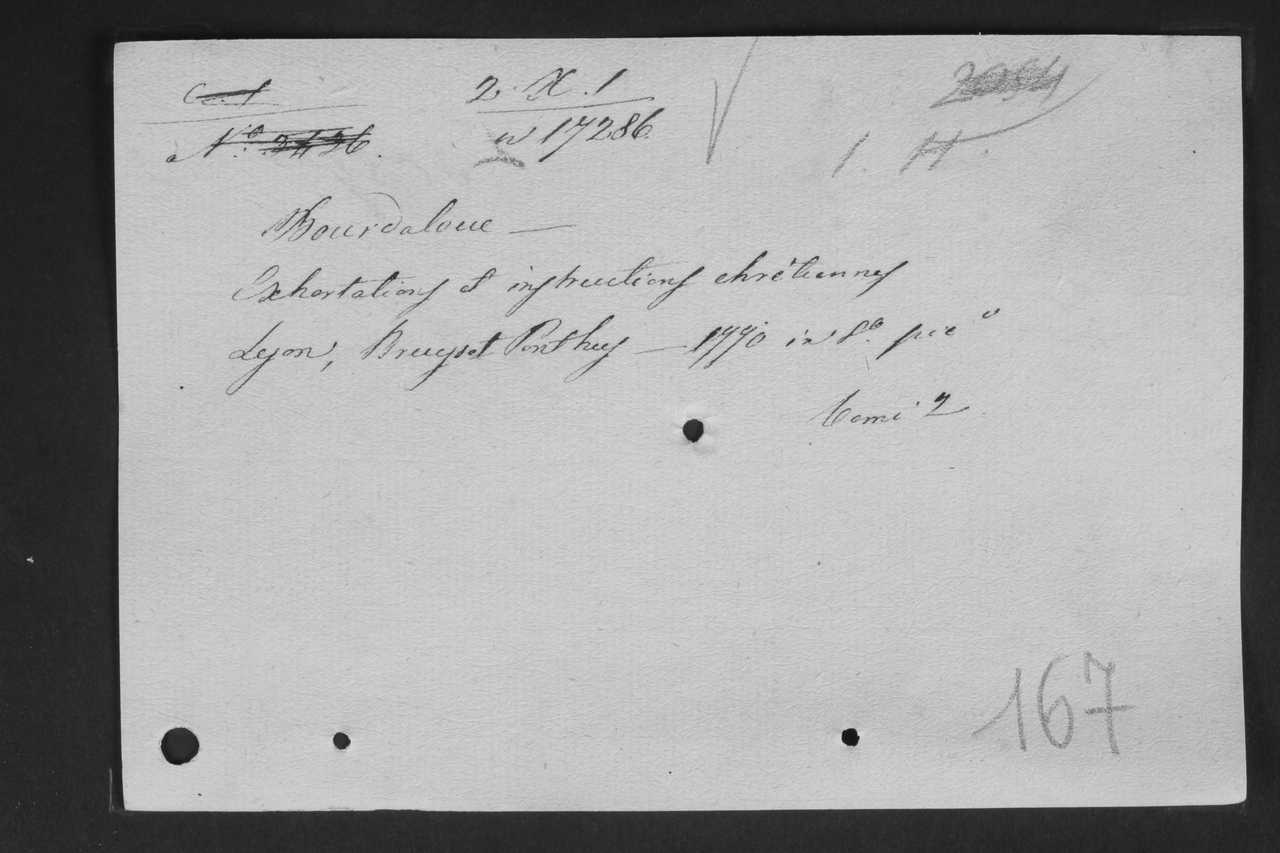 2. X. 1
n 17286.
1. H.
Bourdaloue —
Exhortations et instructions chrétiennes
Lyon, Bruyset Ponthus — 1770 in 8º.
tome 2
167